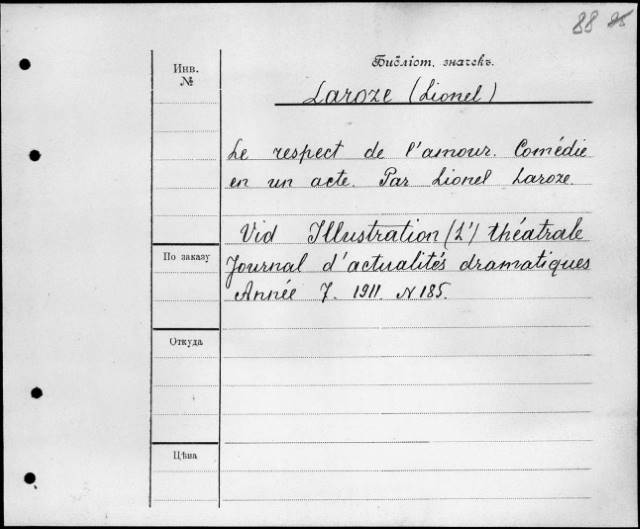 88 85
Инв.
№
Библіот. значекъ.
Laroze (Lionel)
Le respect de l'amour. Comédie
en un acte. Par Lionel Laroze.
Vid Illustration (L') théatrale
По заказу
Journal d'actualités dramatiques
Année 7. 1911. N 185.
Откуда
Цѣна